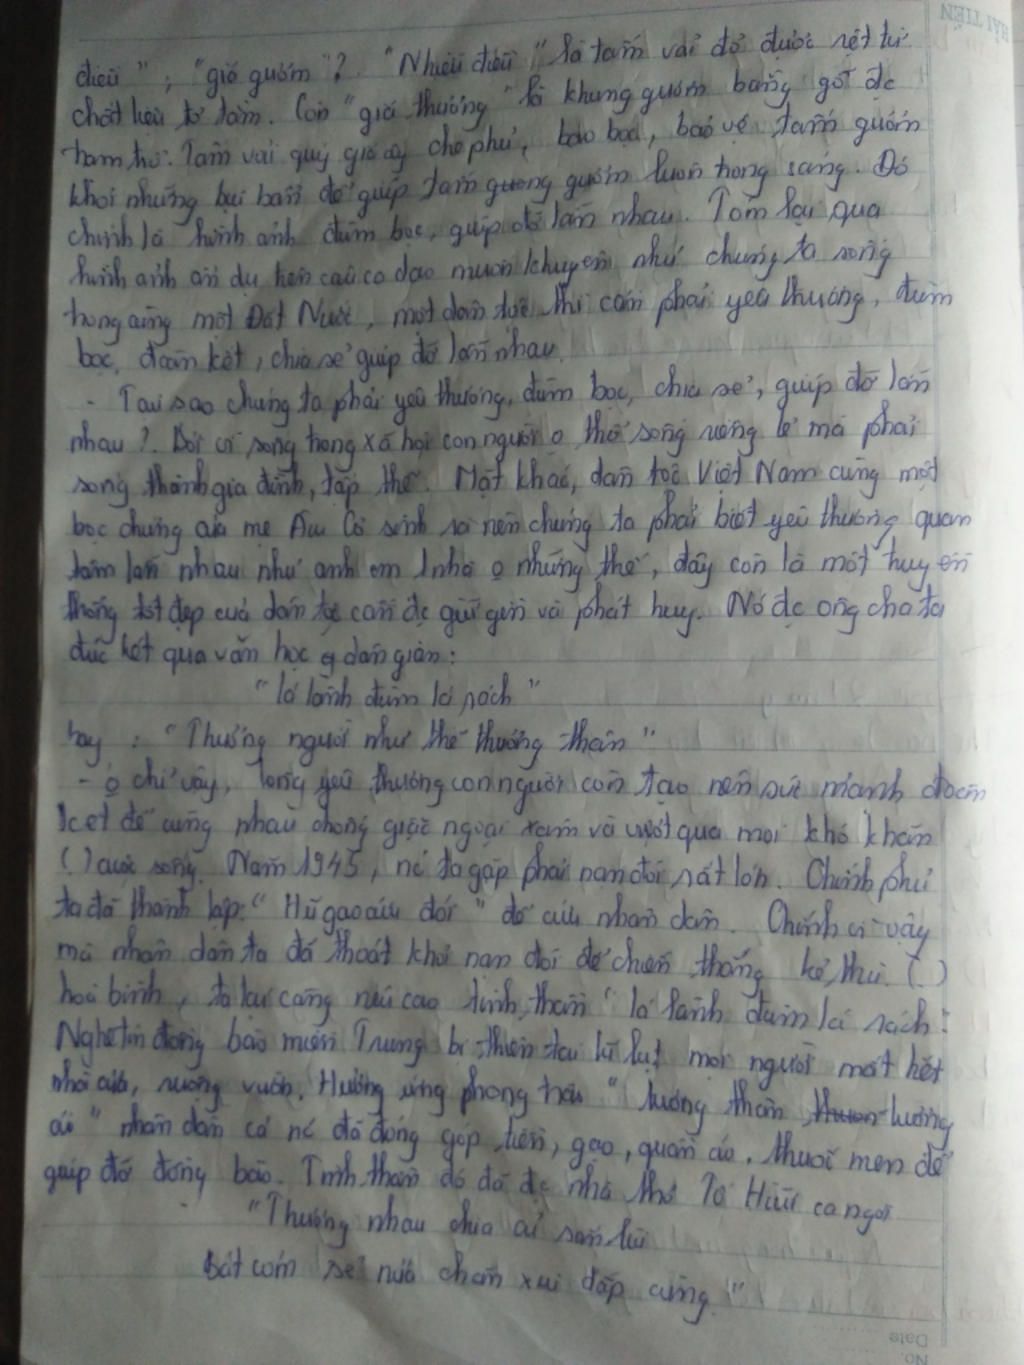 HẢI TIẾN
điều", "giá gương"? "Nhiễu điều" là tấm vải đỏ được dệt từ
chất liệu tơ tằm. Còn "giá thương" là khung gương bằng gỗ đc
chạm trổ. Tấm vải quý giá ấy che phủ, bao bọc, bảo vệ tấm gương
khỏi những bụi bẩn để giúp tấm gương gương luôn trong sáng. Đó
chính là hình ảnh đùm bọc, giúp đỡ lẫn nhau. Tóm lại qua
hình ảnh ẩn dụ trên câu ca dao muốn khuyên nhủ chúng ta sống
trong cùng một Đất Nước, một dân tộc thì cần phải yêu thương, đùm
bọc, đoàn kết, chia sẻ giúp đỡ lẫn nhau.
- Tại sao chúng ta phải yêu thương, đùm bọc, chia sẻ, giúp đỡ lẫn
nhau? Bởi vì sống trong xã hội con người o thể sống riêng lẻ mà phải
sống thành gia đình, tập thể. Mặt khác, dân tộc Việt Nam cùng một
bọc chứng của mẹ Âu Cơ sinh ra nên chúng ta phải biết yêu thương quan
tâm lẫn nhau như anh em 1 nhà o những thế, đây còn là một truyền
thống tốt đẹp của dân tộc cần đc giữ gìn và phát huy. Nó đc ông cha ta
đúc kết qua văn học dân gian:
"lá lành đùm lá rách"
hay : "Thương người như thể thương thân"
- o chỉ vậy, lòng yêu thương con người còn tạo nên sức mạnh đoàn
kết để cùng nhau chống giặc ngoại xâm và vượt qua mọi khó khăn
( ) cuộc sống. Năm 1945, nc ta gặp phải nạn đói rất lớn. Chính phủ
ta đã thành lập: "Hũ gạo cứu đói" để cứu nhân dân. Chính vì vậy
mà nhân dân ta đã thoát khỏi nạn đói để chiến thắng kẻ thù. ( )
hoà bình, ta lại càng nêu cao tinh thần "lá lành đùm lá rách".
Nghe tin đồng bào miền Trung bị thiên tai lũ lụt mọi người mất hết
nhà cửa, ruộng vườn. Hưởng ứng phong trào "tương thân tương
ái" nhân dân cả nc đã đóng góp tiền, gạo, quần áo, thuốc men để
giúp đỡ đồng bào. Tinh thần đó đã đc nhà thơ Tố Hữu ca ngợi
"Thương nhau chia củ sắn lùi
Bát cơm sẻ nửa chăn sui đắp cùng."
Date
No.